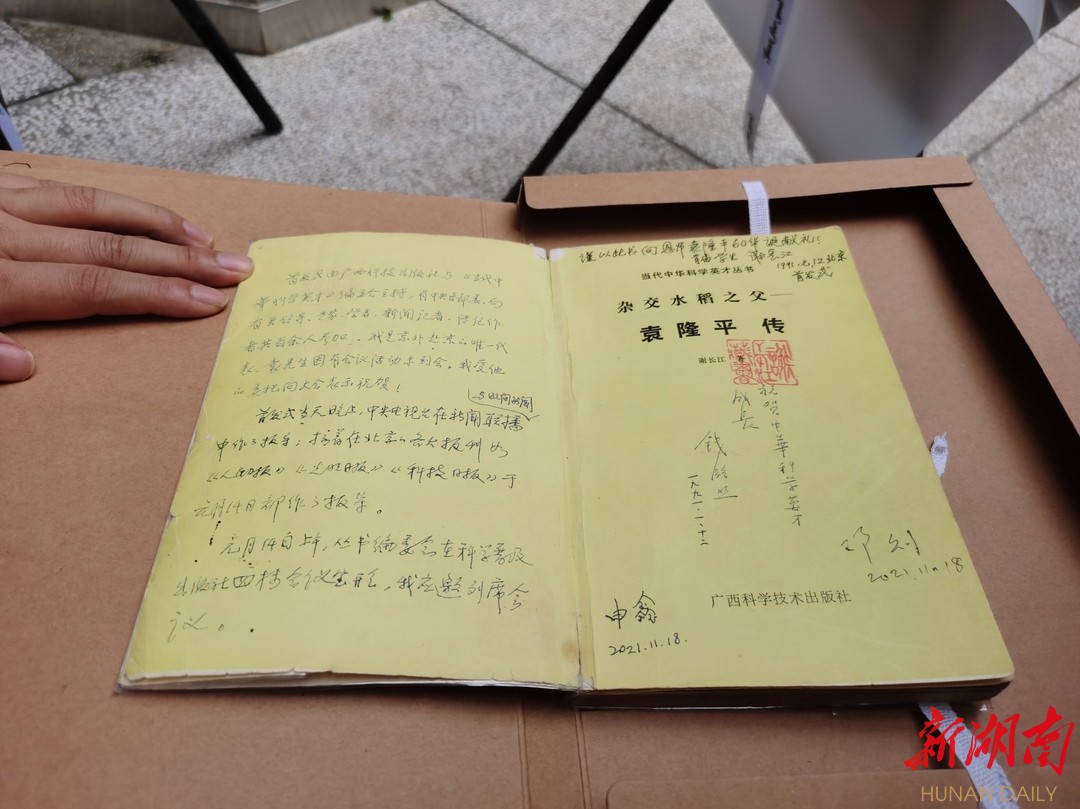 首发式由广西科技出版社与《当代中
华科学英才》编委会主持，有中央各部委、局
有关领导、专家、学者、新闻记者、传记作
者共百余人参加。我是京外赴京的唯一代
表。袁先生因有会议活动未到会。我受他
的委托向大会表示祝贺！
首发式当天晚上，中央电视台在新闻联播
与晚间新闻
中作了报导；接着在北京的各大报刊如
《人民日报》《光明日报》《科技日报》于
元月14日都作了报导。
元月14日上午，丛书编委会在科学普及
出版社四楼会议室开会，我应邀列席会
议。
谨以此书向恩师袁隆平60华诞献礼！
首届学生 谢长江
1991.元.12.北京
首发式
当代中华科学英才丛书
杂交水稻之父——
袁隆平传
谢长江 著
祝贺中华科学英才
成长
钱
一九九一.一.十二
邓刘
2021.11.18
申鑫
2021.11.18.
广西科学技术出版社
新湖南
HUNAN DAILY